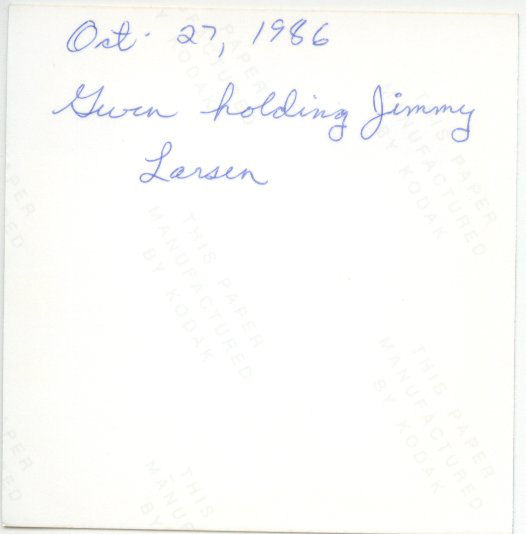 Oct. 27, 1986
Gwen holding Jimmy
Larsen
THIS PAPER
MANUFACTURED
BY KODAK
THIS PAPER
MANUFACTURED
BY KODAK
THIS PAPER
MANUFACTURED
BY KODAK
THIS PAPER
MANUFACTURED
BY KODAK
THIS
MANU
BY